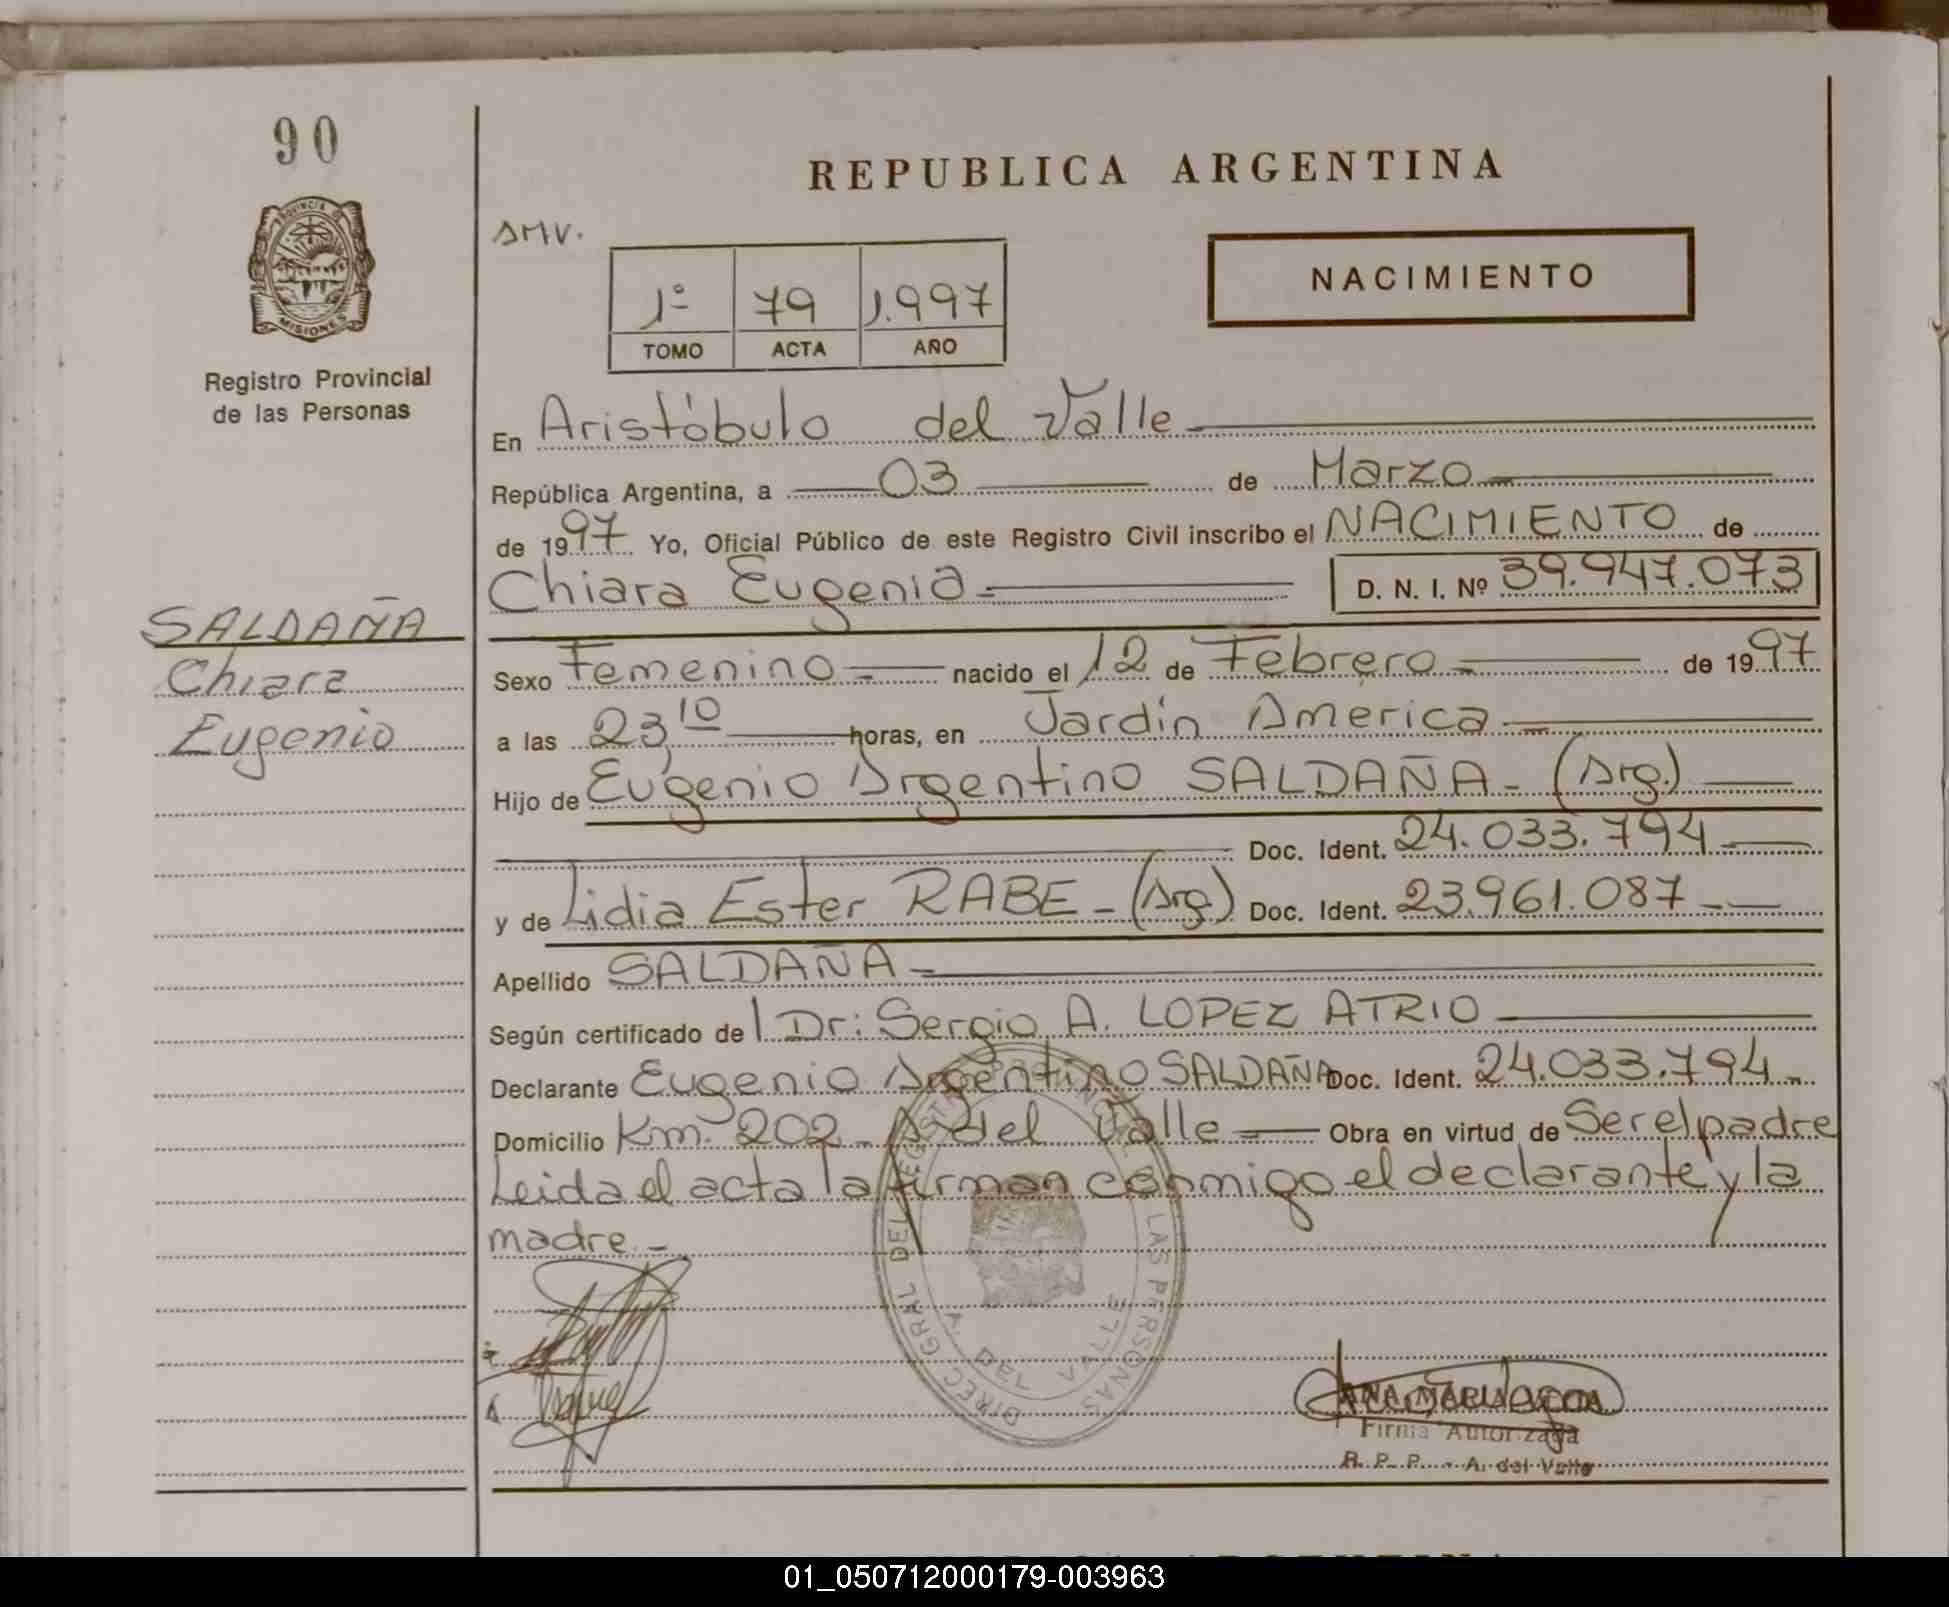 90
REPUBLICA ARGENTINA
PROVINCIA DE
MISIONES
Registro Provincial
de las Personas
AMV.
1º 79 1.997
TOMO ACTA AÑO
NACIMIENTO
En Aristóbulo del Valle
República Argentina, a 03 de Marzo
de 1997 Yo, Oficial Público de este Registro Civil inscribo el NACIMIENTO de
Chiara Eugenia D. N. I. Nº 39.947.073
SALDAÑA
Chiara
Eugenia
Sexo Femenino nacido el 12 de Febrero de 1997
a las 23,10 horas, en Jardín America
Hijo de Eugenio Argentino SALDAÑA - (Arg.)
Doc. Ident. 24.033.794
y de Lidia Ester RABE - (Arg.) Doc. Ident. 23.961.087
Apellido SALDAÑA
Según certificado de Dr: Sergio A. LOPEZ ATRIO
Declarante Eugenio Argentino SALDAÑA Doc. Ident. 24.033.794
Domicilio Km. 202 - A. del Valle Obra en virtud de Ser el padre
Leida el acta la firman conmigo el declarante y la
madre.-
DIREC. GRAL DEL REGISTRO PROVINCIAL DE LAS PERSONAS
A. DEL VALLE
ANA MARIA
Firma Autorizada
R. P. P. - A. del Valle
01_050712000179-003963